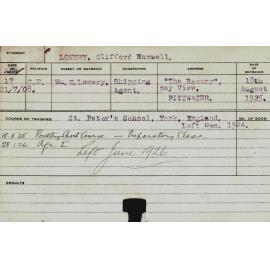 STUDENT LOWERY, Clifford Maxwell,
DATE OF RELIGION PARENT OR GUARDIAN OCCUPATION ADDRESS DATE OF ENTRANCE
17 C.E. Wm. E. Lowery. Shipping "The Rosary", 18th
21/7/08. Agent. Bay View, August
PITTWATER. 1925.
COURSE OR TRAINING St. Peter's School, York, England. NO. OF ROOM
Left Dec. 1924.
18.8.25 Poultry Short Course — Preparatory Class.
28.1.26 Agr. I
Left June 1926
RESULTS